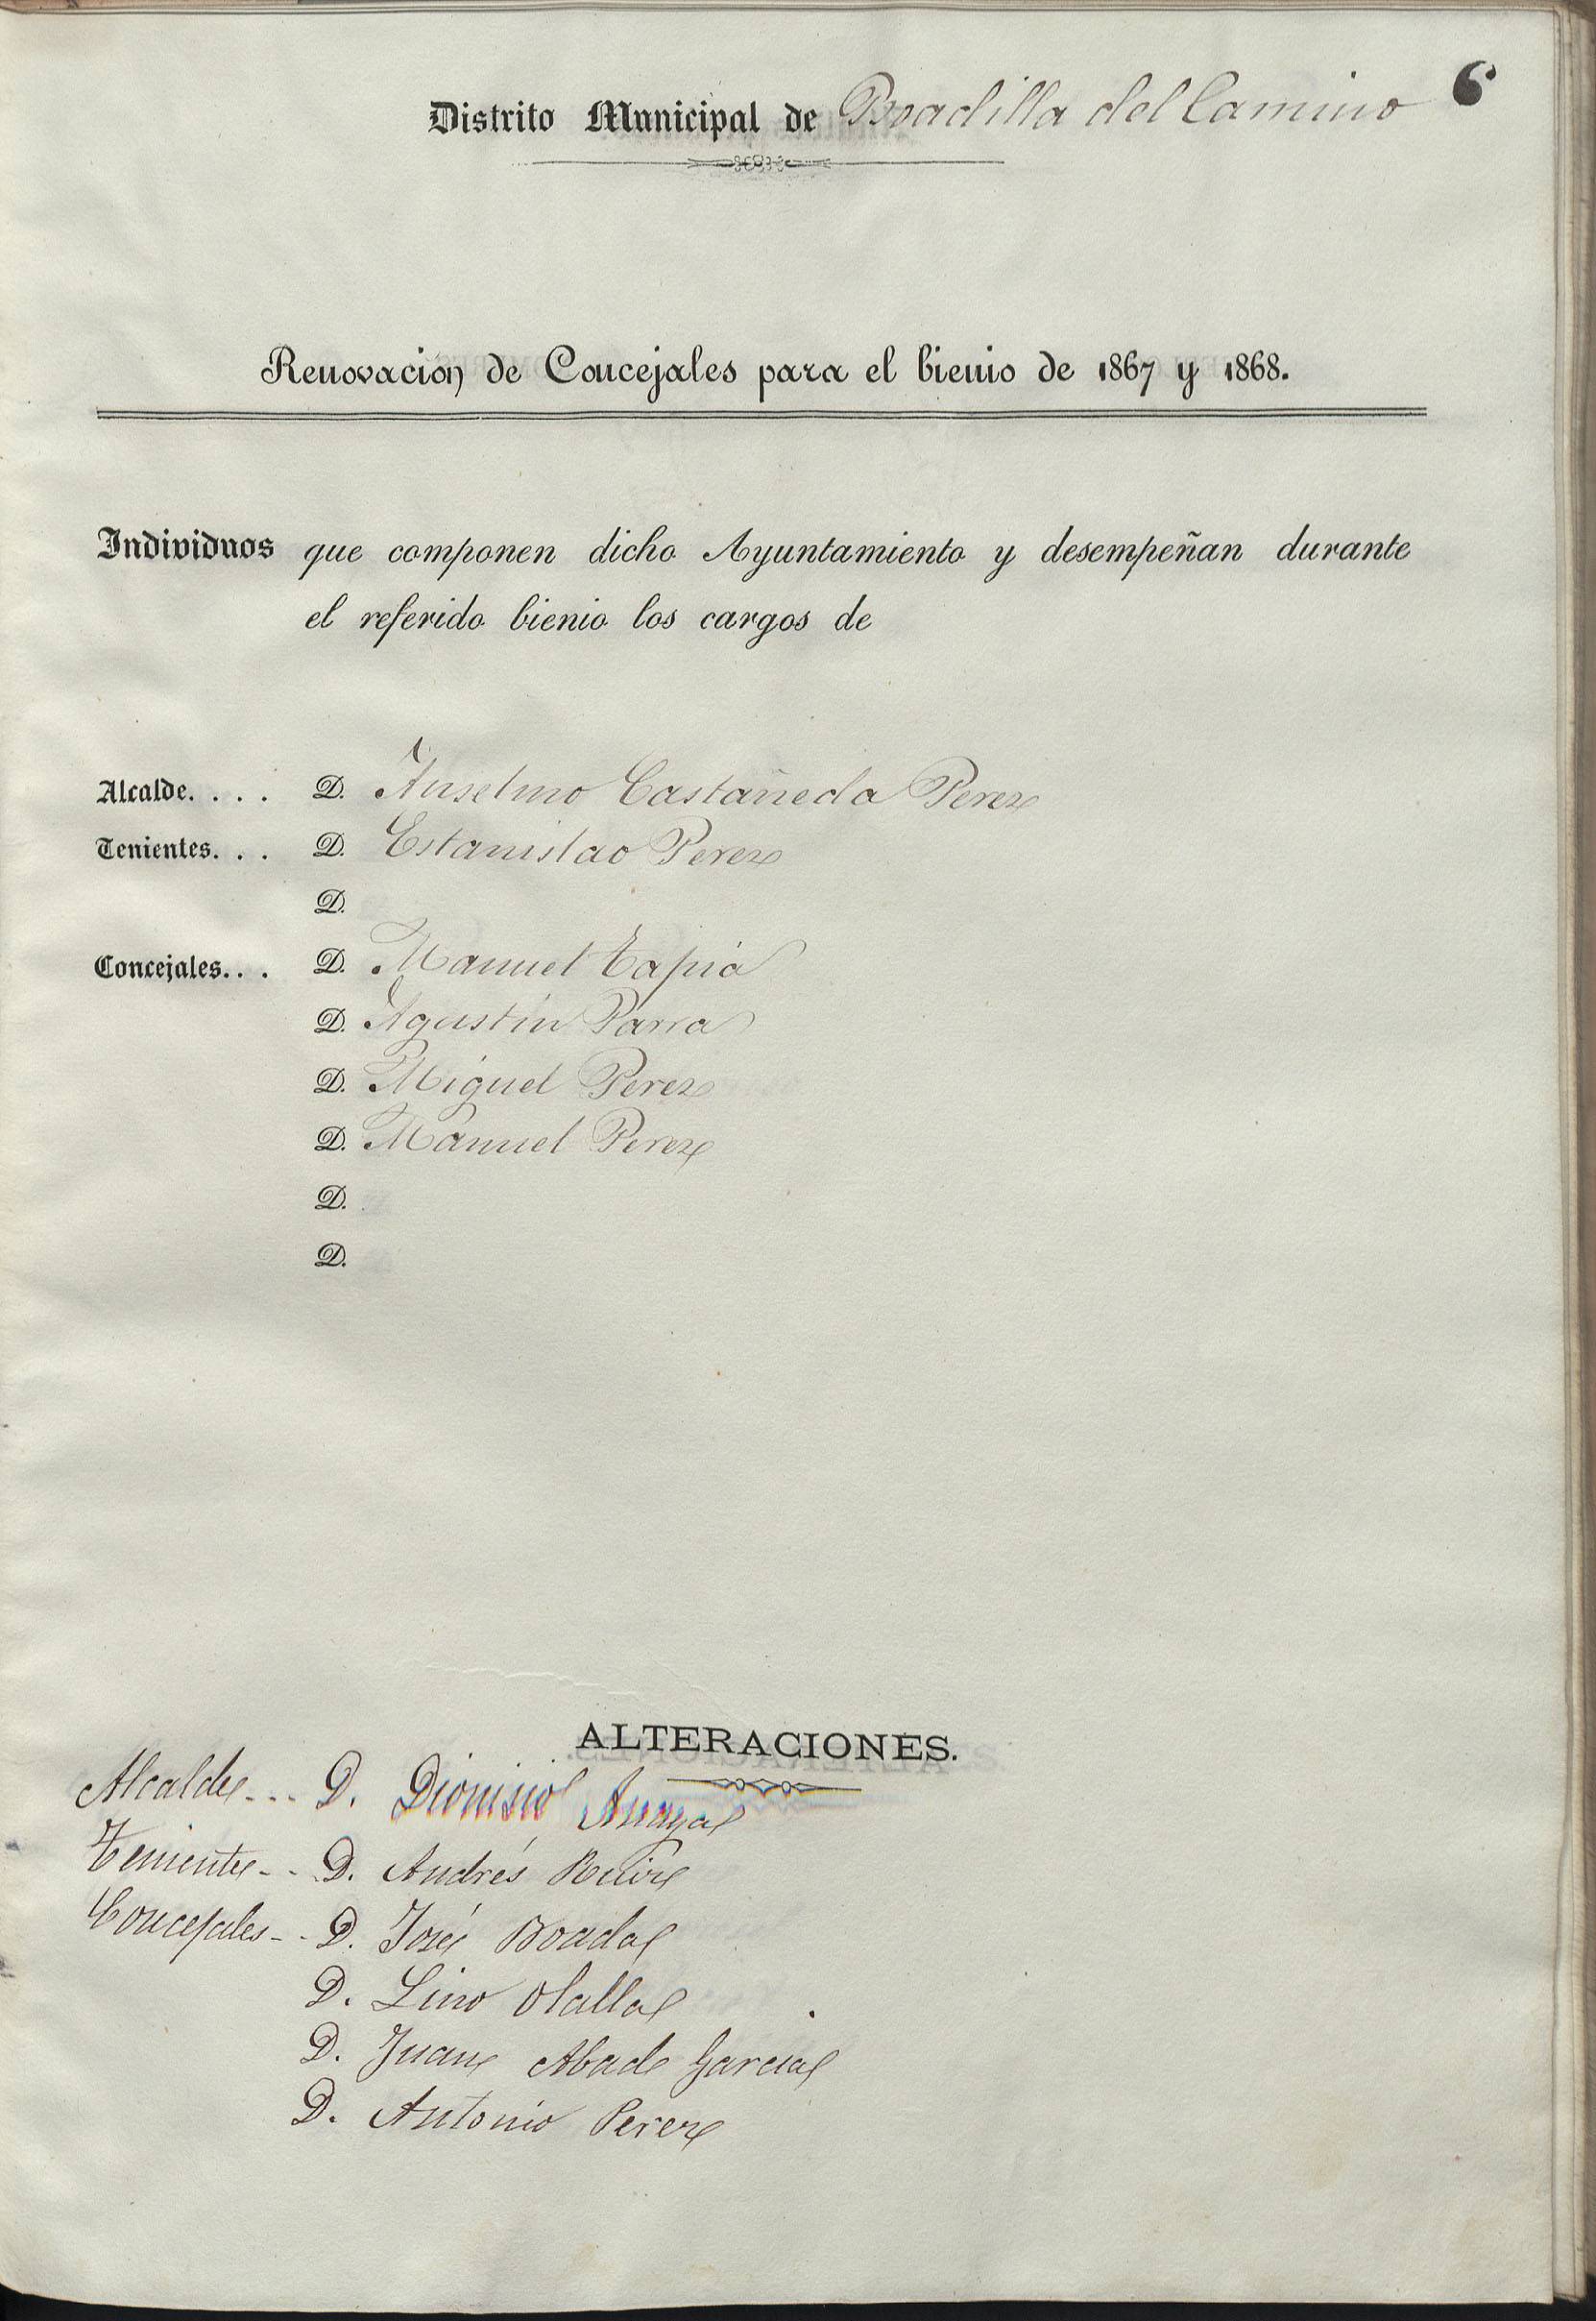 6
Distrito Municipal de Boadilla del Camino
Renovación de Concejales para el bienio de 1867 y 1868.
Individuos que componen dicho Ayuntamiento y desempeñan durante
el referido bienio los cargos de
Alcalde. . . . D. Anselmo Castañeda Perez
Tenientes. . . D. Estanislao Perez
D.
Concejales. . . D. Manuel Tapia
D. Agustin Parra
D. Miguel Perez
D. Manuel Perez
D.
D.
ALTERACIONES.
Alcalde - - - D. Dionisio Anaya
Teniente - - D. Andrés
Concejales - - D. José Boada
D. Lino Olalla
D. Juan Abad Garcia
D. Antonio Perez